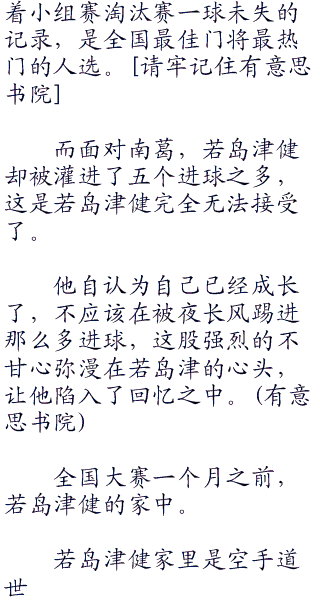 着小组赛淘汰赛一球未失的
记录，是全国最佳门将最热
门的人选。[请牢记住有意思
书院]
而面对南葛，若岛津健
却被灌进了五个进球之多，
这是若岛津健完全无法接受
了。
他自认为自己已经成长
了，不应该在被夜长风踢进
那么多进球，这股强烈的不
甘心弥漫在若岛津的心头，
让他陷入了回忆之中。(有意
思书院)
全国大赛一个月之前，
若岛津健的家中。
若岛津健家里是空手道
世